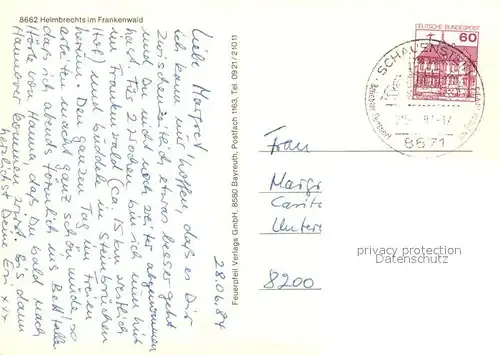 8662 Helmbrechts im Frankenwald
28.06.84
Liebe Margret,
ich kann nur hoffen, daß es Dir
zwischenzeitlich etwas besser geht
und Du nicht noch weiter abgenommen
hast. Für 2 Wochen bin ich nun hier
im Frankenwald (ca. 15 km westlich
Hof) und
Den ganzen Tag im Freien
arbeiten macht ganz schön müde, so
daß ich abends förmlich ins Bett falle.
Hörte von Hanna, daß Du bald nach
Hannover kommen wirst. Bis dann
herzlichst Deine
Feuerpfeil Verlags GmbH, 8580 Bayreuth, Postfach 1163, Tel. 0921/21011
DEUTSCHE BUNDESPOST
60
SCHAUENSTEIN
8671
Frau
Marg
Carit
Unter
8200
privacy protection
Datenschutz